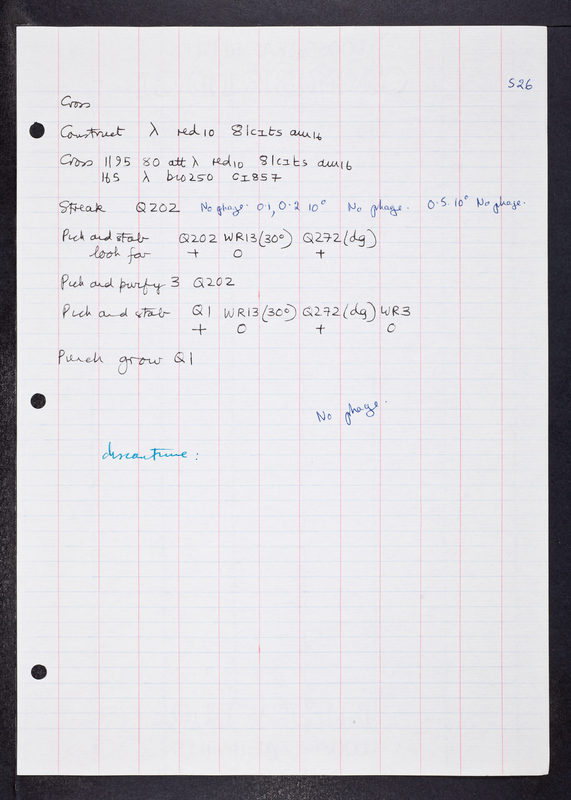 526
Cross
Construct λ red10 81cIts am16
Cross 1195 80 att λ red10 81cIts am16
165 λ bio250 CI857
Streak Q202 No phage. 0.1, 0.2 10° No phage. 0.5. 10° No phage.
Pick and stab Q202 WR13(30°) Q272(dg)
look for + 0 +
Pick and purify 3 Q202
Pick and stab Q1 WR13(30°) Q272(dg) WR3
+ 0 + 0
Punch grow Q1
No phage.
discontinue: